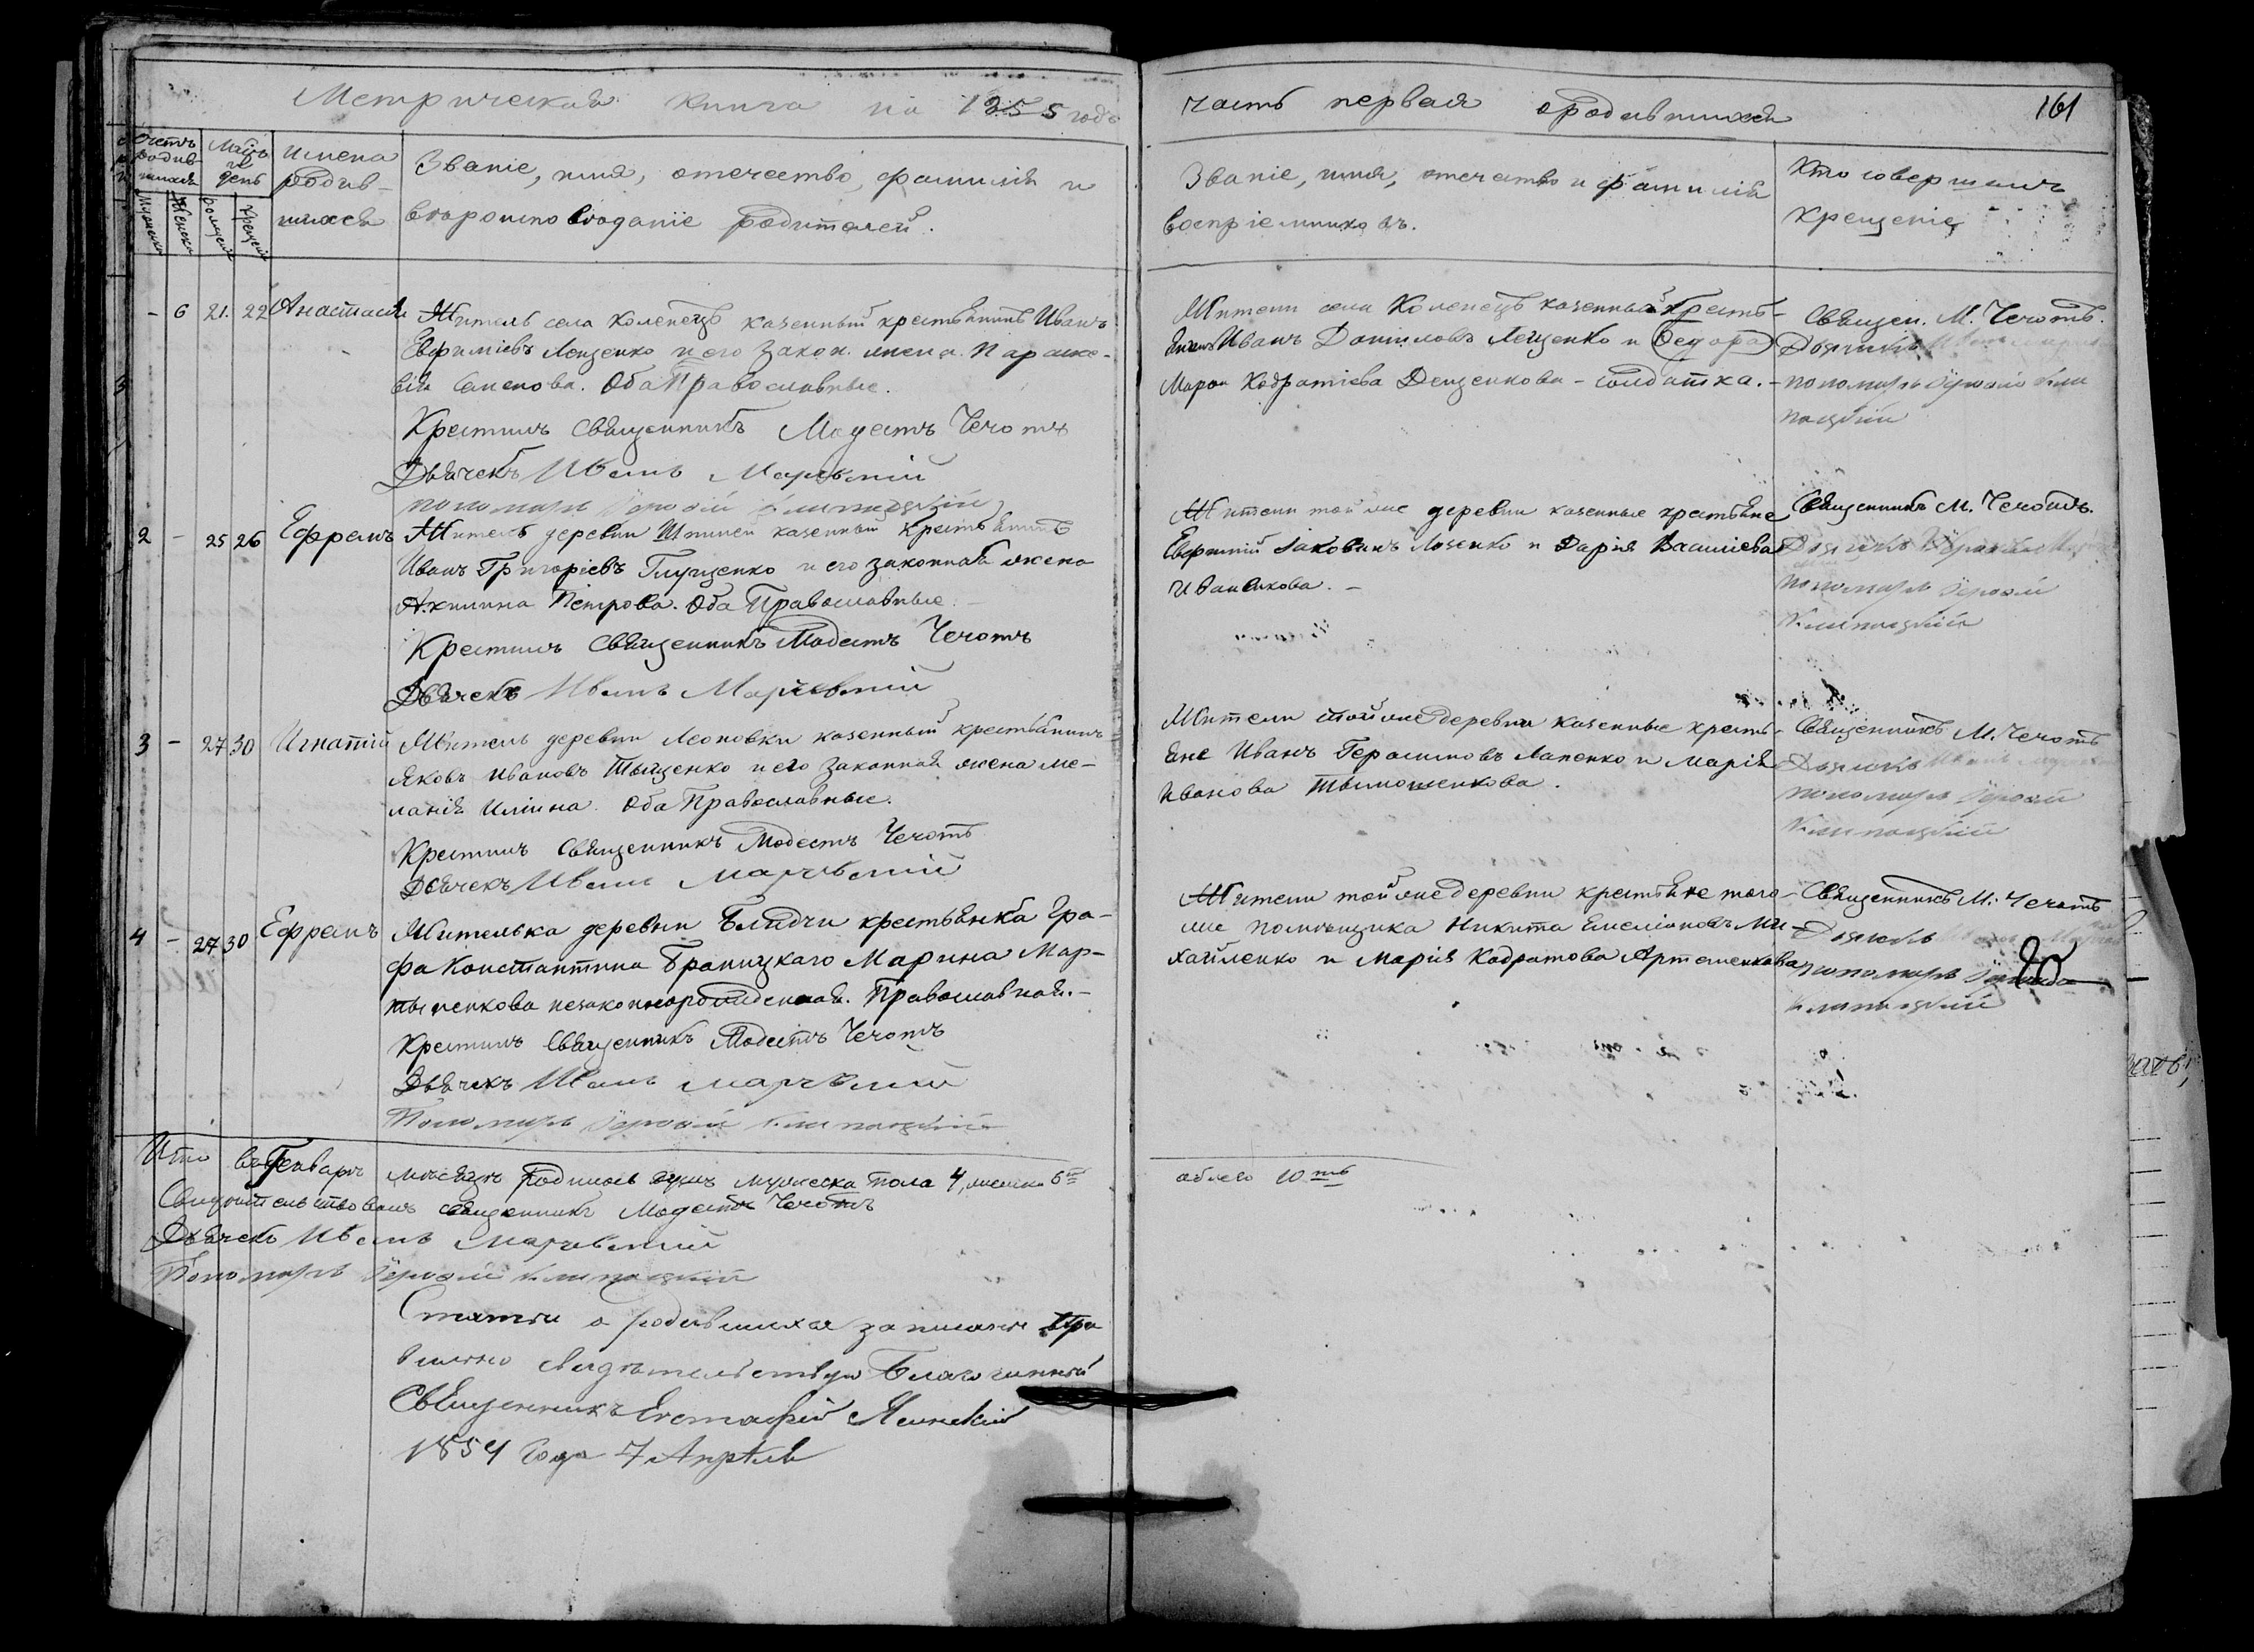 Метрическая книга на 1855 годъ
часть первая о родившихся
161
Счетъ родив-шихся
Мѣсяцъ и день
Имена родив-шихся
Званіе, имя, отечество, фамилія и
вѣроисповѣданіе родителей.
Званіе, имя, отечество и фамилія
воспріемниковъ.
Кто совершалъ
крещеніе
Мужеска
Женска
рожденія
крещенія
- 6 21. 22 Анастасія
Житель села Коленецъ казенный крестьянинъ Иванъ
Евфиміевъ Лещенко и его закон. жена Параске-
вія Семенова. Оба Православные.
Крестилъ Священникъ Модестъ Чечотъ
Дьячекъ Иванъ Марževскій
Жители села Коленецъ казенный кресть-
янинъ Иванъ Даниловъ Лещенко и Ѳедора
Марѳа Кодратіева Лещенкова - солдатка. -
Священ. М. Чечотъ.
Дьячекъ
пономарь
2 - 25 26 Ефремъ
Житель деревни казенный крестьянинъ
Иванъ Григоріевъ Глущенко и его законная жена
Акилина Петрова. Оба Православные. -
Крестилъ Священникъ Модестъ Чечотъ
Дьячекъ Иванъ
Жители той же деревни казенные крестьяне
Іаковъ и Дарія Василіева
Священникъ М. Чечотъ.
Дьячекъ
пономарь
3 - 27 30 Игнатій
Житель деревни Леоновки казенный крестьянинъ
Яковъ Ивановъ Тыщенко и его законная жена Ме-
ланія Иліина. Оба Православные.
Крестилъ Священникъ Модестъ Чечотъ
Дьячекъ Иванъ
Жители той же деревни казенные кресть-
яне Иванъ Герасимовъ Лапенко и Марія
Иванова Тымошенкова.
Священникъ М. Чечотъ
Дьячекъ
пономарь
4 - 27 30 Ефремъ
Жителька деревни Блидчи крестьянка Гра-
фа Константина Браницкаго Марина Мар-
тыненкова незаконнорожденная. Православная. -
Крестилъ Священникъ Модестъ Чечотъ
Дьячекъ Иванъ
Пономарь
Жители той же деревни крестьяне того-
же помѣщика Никита Емеліановъ Ми-
хайленко и Марія Кодратова Артеменкова
Священникъ М. Чечотъ
Дьячекъ
пономарь
Итого въ Генварѣ мѣсяцѣ родилось душъ мужеска пола 4, женска 6ть
обоего 10ть
Свидѣтельствовалъ священникъ Модестъ Чечотъ
Дьячекъ Иванъ
Пономарь
Статьи о родившихся записаны пра
вильно свидѣтельствую Благочинный
Священникъ Евстафій Ясинскій
года 7 Апрѣля